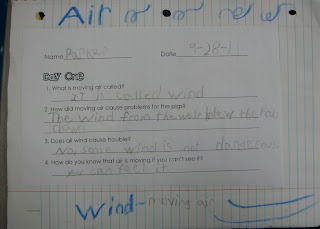 Air
Name Parker Date 9-28-11
Day One
1. What is moving air called?
It is called wind
2. How did moving air cause problems for the pigs?
The wind from the wolf blew the
down
3. Does all wind cause trouble?
No, some wind is not dangerous
4. How do you know that air is moving if you can't see it?
you can feel it
Wind-moving air